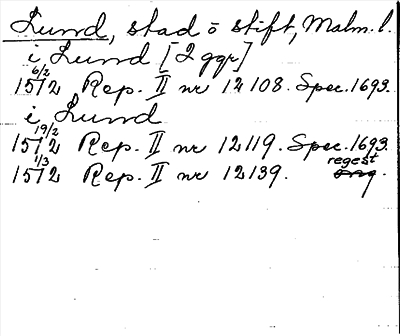 Lund, stad o stift, Malm. l.
i Lund [2 ggr]
1572 6/2 Rep. II nr 12108. Spec. 1693.
i Lund
1572 19/2 Rep. II nr 12119. Spec. 1693.
1572 1/3 Rep. II nr 12139. regest